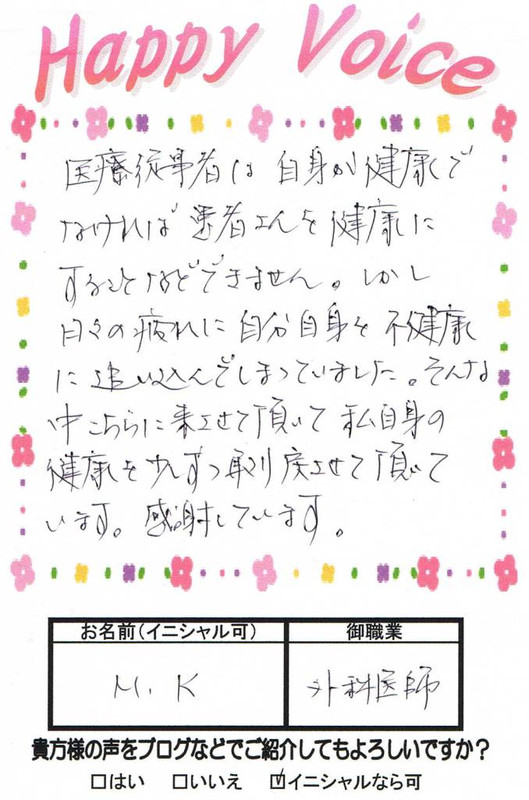 Happy Voice
医療従事者は自身が健康で
なければ患者さんを健康に
することなどできません。しかし
日々の疲れに自分自身を不健康
に追い込んでしまっていました。そんな
中こちらに来させて頂いて私自身の
健康を少しずつ取り戻させて頂いて
います。感謝しています。
お名前(イニシャル可) 御職業
M. K 外科医師
貴方様の声をブログなどでご紹介してもよろしいですか?
□はい □いいえ ☑イニシャルなら可